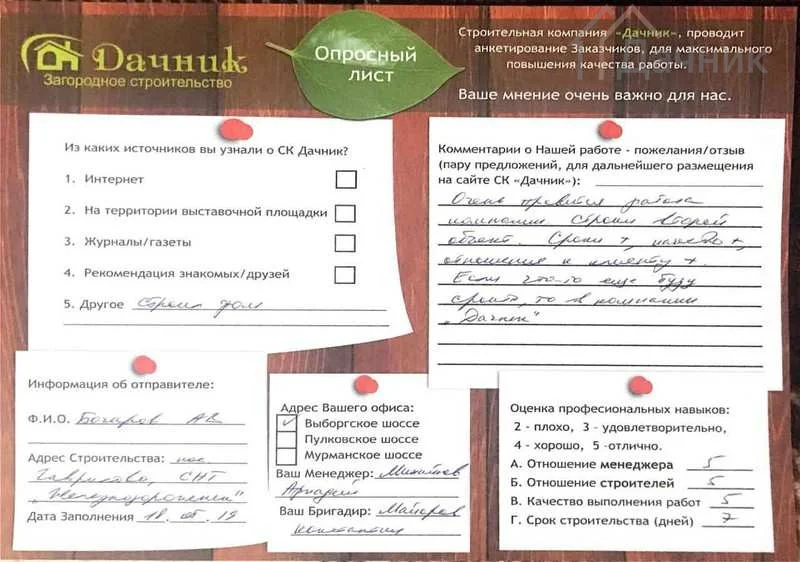 Дачник
Загородное строительство
Опросный
лист
Строительная компания «Дачник», проводит
анкетирование Заказчиков, для максимального
повышения качества работы.
Дачник
Ваше мнение очень важно для нас.
Из каких источников вы узнали о СК Дачник?
1. Интернет
2. На территории выставочной площадки
3. Журналы/газеты
4. Рекомендация знакомых/друзей
5. Другое строил дом
Комментарии о Нашей работе - пожелания/отзыв
(пару предложений, для дальнейшего размещения
на сайте СК «Дачник»):
Очень нравится работа
компании. Строим второй
объект. Сроки +, качество +,
отношение к клиенту +.
Если что-то еще буду
строить, то в компании
„Дачник"
Информация об отправителе:
Ф.И.О. АВ
Адрес Строительства: пос
Гаврилово, СНТ
„Железнодорожник"
Дата Заполнения 18.05.19
Адрес Вашего офиса:
Выборгское шоссе
Пулковское шоссе
Мурманское шоссе
Ваш Менеджер: Михайлов
Аркадий
Ваш Бригадир: Майоров
Константин
Оценка професиональных навыков:
2 - плохо, 3 - удовлетворительно,
4 - хорошо, 5 -отлично.
А. Отношение менеджера 5
Б. Отношение строителей 5
В. Качество выполнения работ 5
Г. Срок строительства (дней) 7